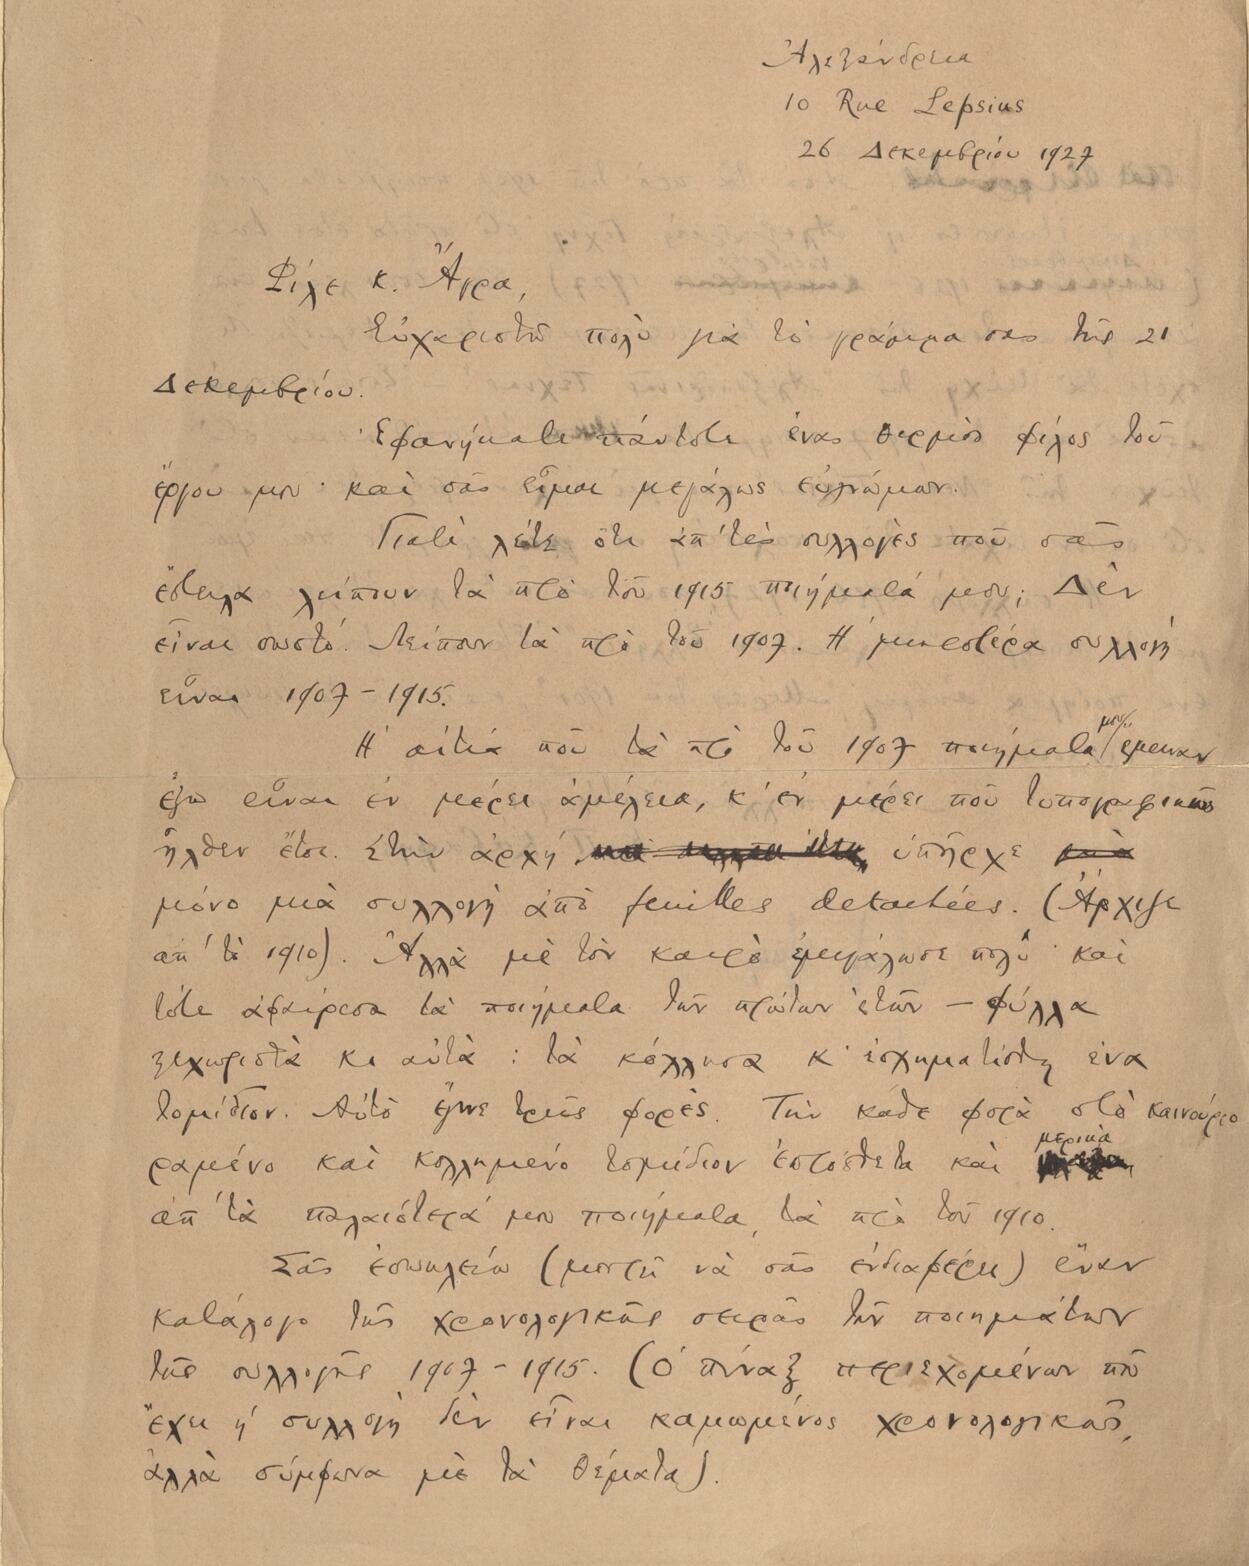 Ἀλεξάνδρεια
10 Rue Lepsius
26 Δεκεμβρίου 1927
Φίλε κ. Ἄγρα,
Εὐχαριστῶ πολὺ γιὰ τὸ γράμμα σας τῆς 21
Δεκεμβρίου.
Ἐφανήκατε πάντοτε ἕνας θερμὸς φίλος τοῦ
ἔργου μου· καὶ σᾶς εἶμαι μεγάλως εὐγνώμων.
Γιατὶ λέτε ὅτι ἀπ' τὲς συλλογὲς ποῦ σᾶς
ἔστειλα λείπουν τὰ πρὸ τοῦ 1915 ποιήματά μου; Δὲν
εἶναι σωστό. Λείπουν τὰ πρὸ τοῦ 1907. Ἡ μικροτέρα συλλογὴ
εἶναι 1907-1915.
Ἡ αἰτία ποῦ τὰ πρὸ τοῦ 1907 ποιήματα μου ἔμειναν
ἔξω εἶναι ἐν μέρει ἀμέλεια, κ' ἐν μέρει ποῦ τυπογραφικῶς
ἦλθεν ἔτσι. Στὴν ἀρχὴ ὑπῆρχε μιὰ
μόνο μιὰ συλλογὴ ἀπὸ feuilles detachées. (Ἄρχιζε
ἀπ' τὸ 1910). Ἀλλὰ μὲ τὸν καιρὸ ἐμεγάλωσε πολὺ καὶ
τότε ἀφαίρεσα τὰ ποιήματα τῶν πρώτων ἐτῶν — φύλλα
ξεχωριστὰ κι αὐτὰ: τὰ κόλλησα κ' ἐσχηματίσθη ἕνα
τομίδιον. Αὐτὸ ἔγινε τρεῖς φορές. Τὴν κάθε φορὰ στὸ καινούριο
ραμένο καὶ κολλημένο τομίδιον ἐπρόσθετα καὶ μερικὰ
ἀπ' τὰ παλαιότερά μου ποιήματα, τὰ πρὸ τοῦ 1910.
Σᾶς ἐσωκλείω (μπορεῖ νὰ σᾶς ἐνδιαφέρει) ἕναν
κατάλογο τῆς χρονολογικῆς σειρᾶς τῶν ποιημάτων
τῆς συλλογῆς 1907-1915. (Ὁ πίναξ περιεχομένων ποῦ
ἔχει ἡ συλλογὴ δὲν εἶναι καμωμένος χρονολογικῶς,
ἀλλὰ σύμφωνα μὲ τὰ θέματα).